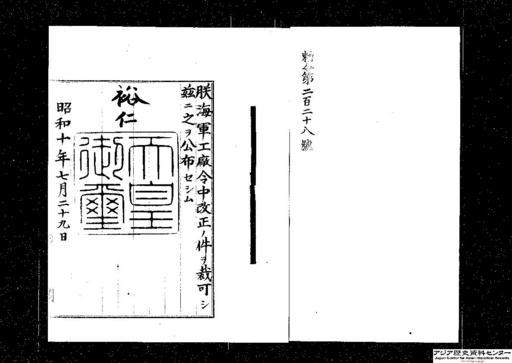 勅令第二百二十八號
朕海軍工廠令中改正ノ件ヲ裁可シ
玆ニ之ヲ公布セシム
裕仁
天皇
御璽
昭和十年七月二十九日
アジア歴史資料センター
Japan Center for Asian Historical Records